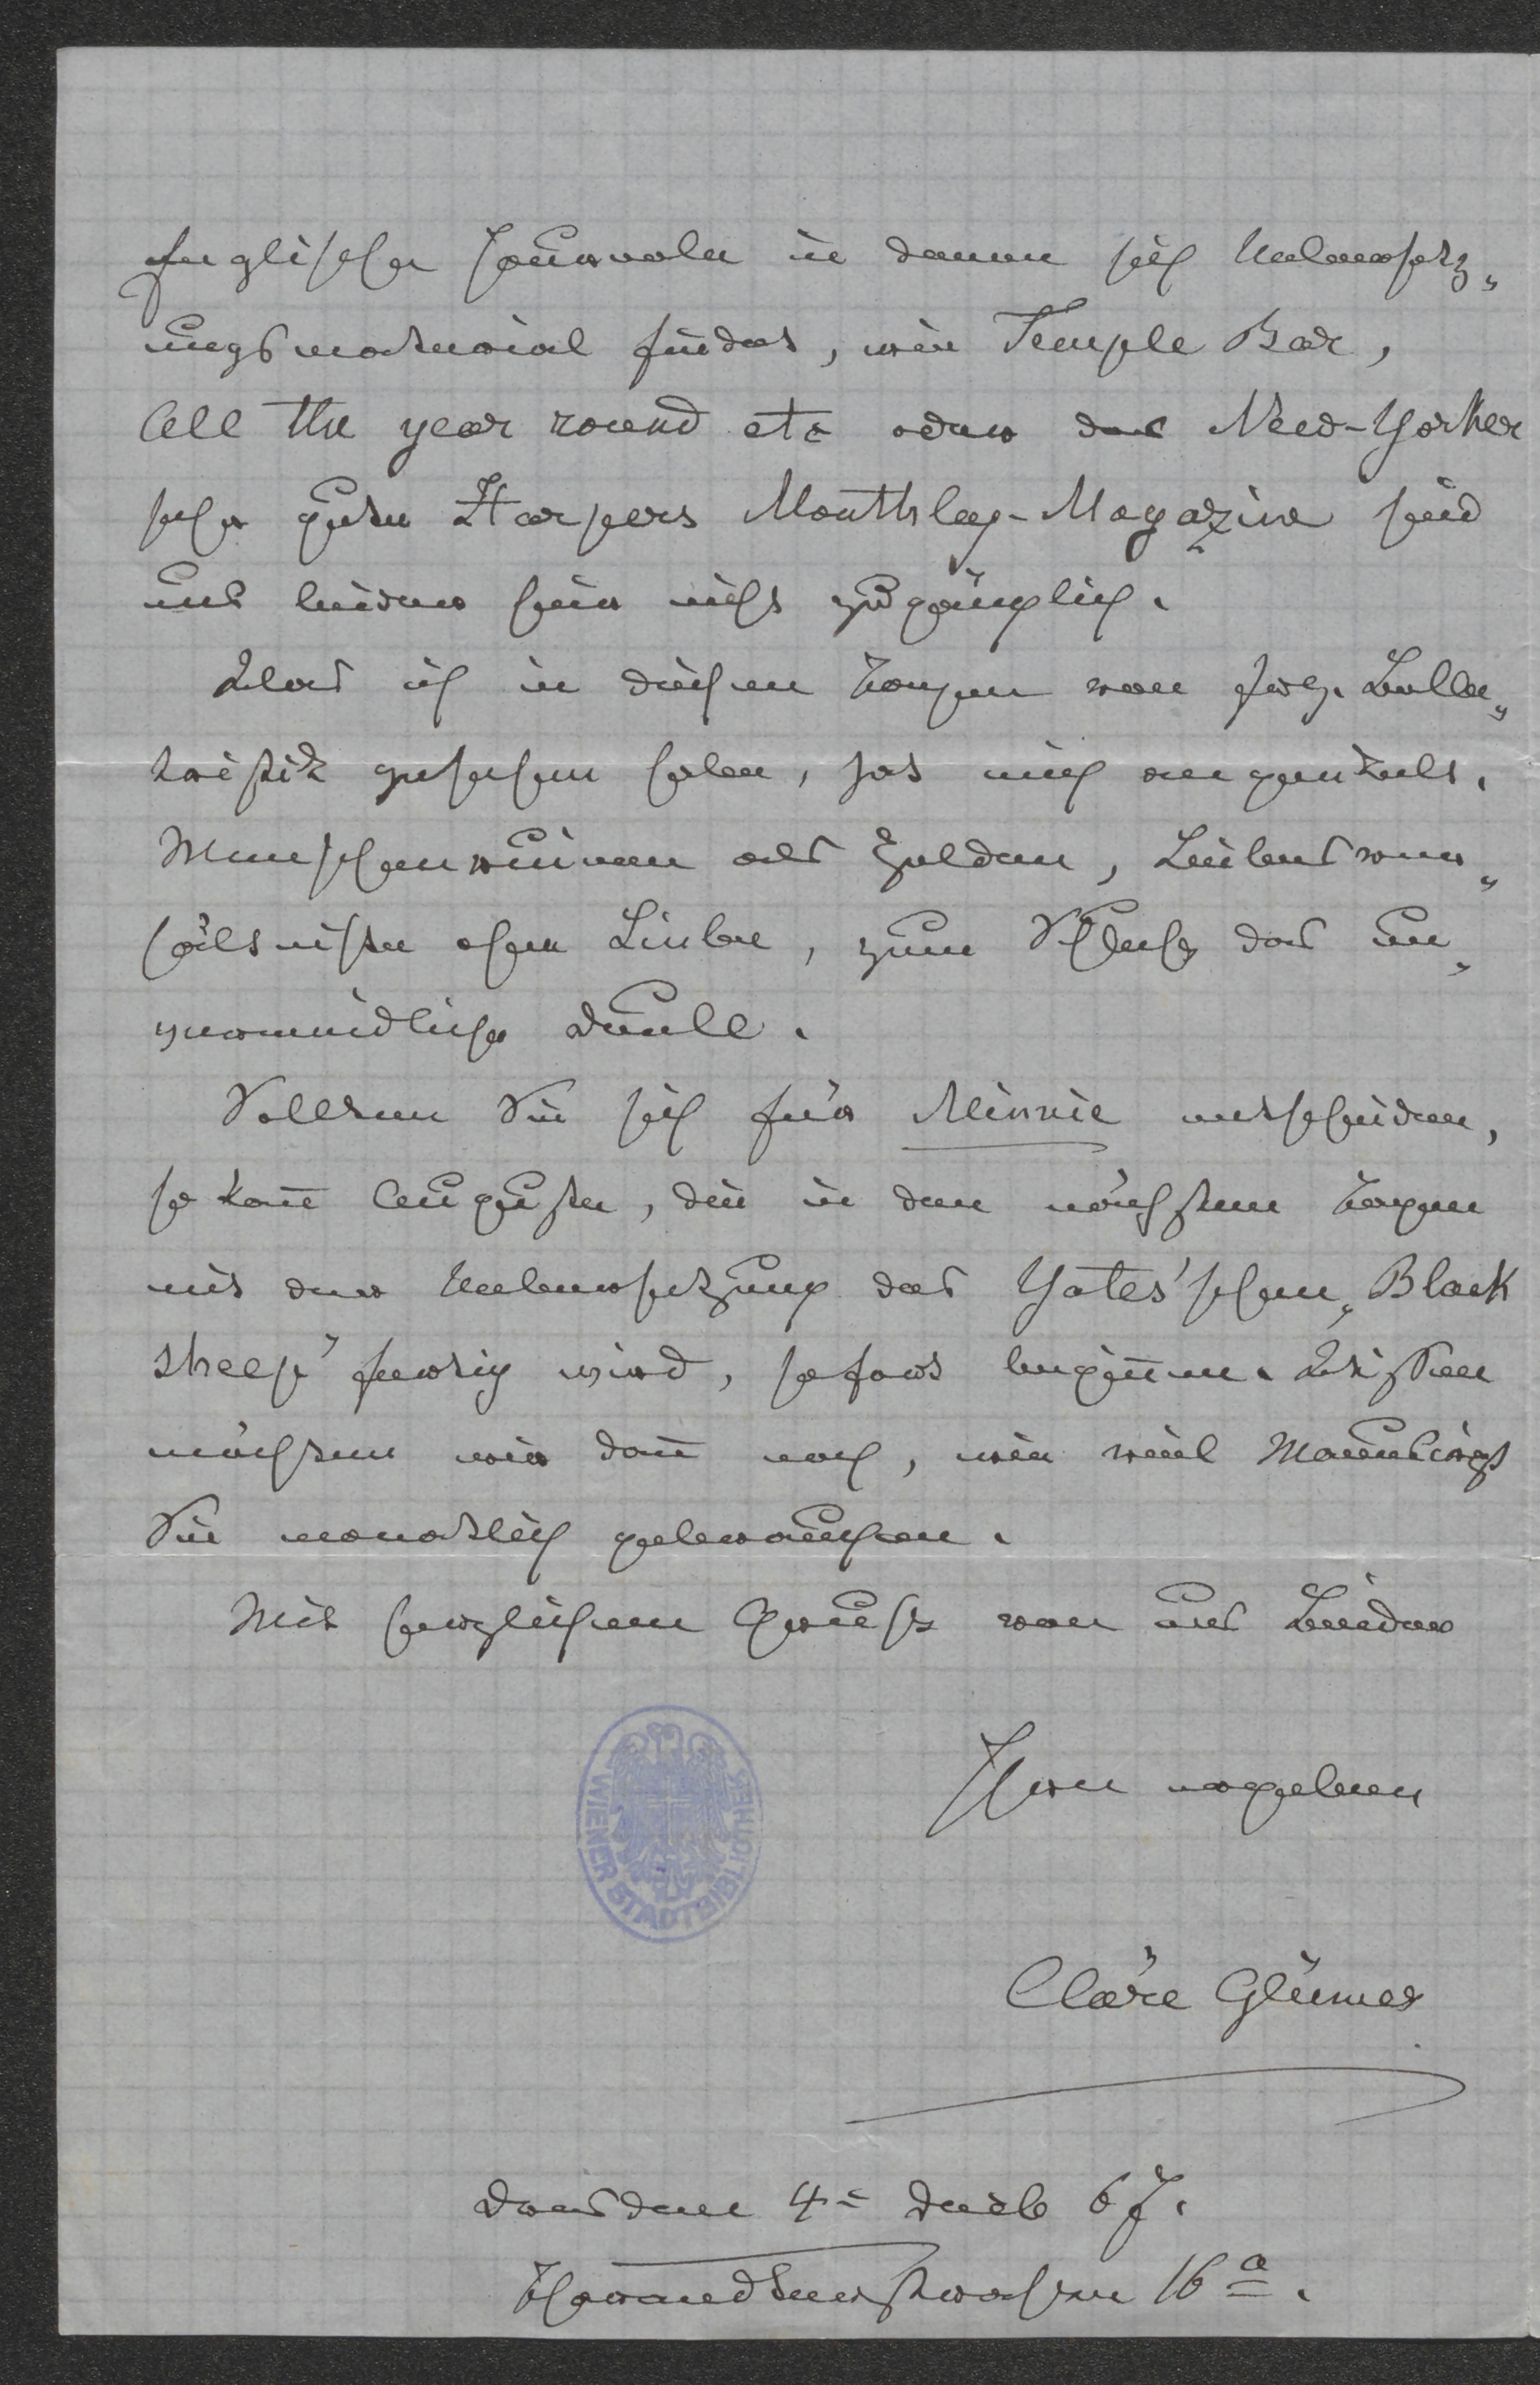 Englische Journale in denen sich Uebersetz„
ungsmaterial findet, wie Temple Bar,
All the year round etc oder das New-Yorker
sehr gute Harpers Monthley-Magazine sind
uns leider hier nicht zugänglich.
Was ich in diesen Tagen von frz. Belle„
tristik gesehen habe, hat mich angeekelt.
Menschenruinen als Helden, Liebesver„
hältnisse ohne Liebe, zum Schluß das un„
vermeidliche Duell.
Sollten Sie sich für Minnie entscheiden,
so kann Auguste, die in den nächsten Tagen
mit der Uebersetzung des Yates'schen „Black
sheep" fertig wird, sofort beginnen. Wissen
möchten wir dann noch, wie viel Manuscript
Sie monatlich gebrauchen.
Mit herzlichem Gruße von uns Beiden
Ihre ergebene
Cläre Glümer
Dresden 4= 67.
16a.
WIENER STADTBIBLIOTHEK